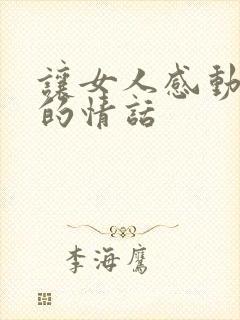 讓女人感動
的情話
李海鷹